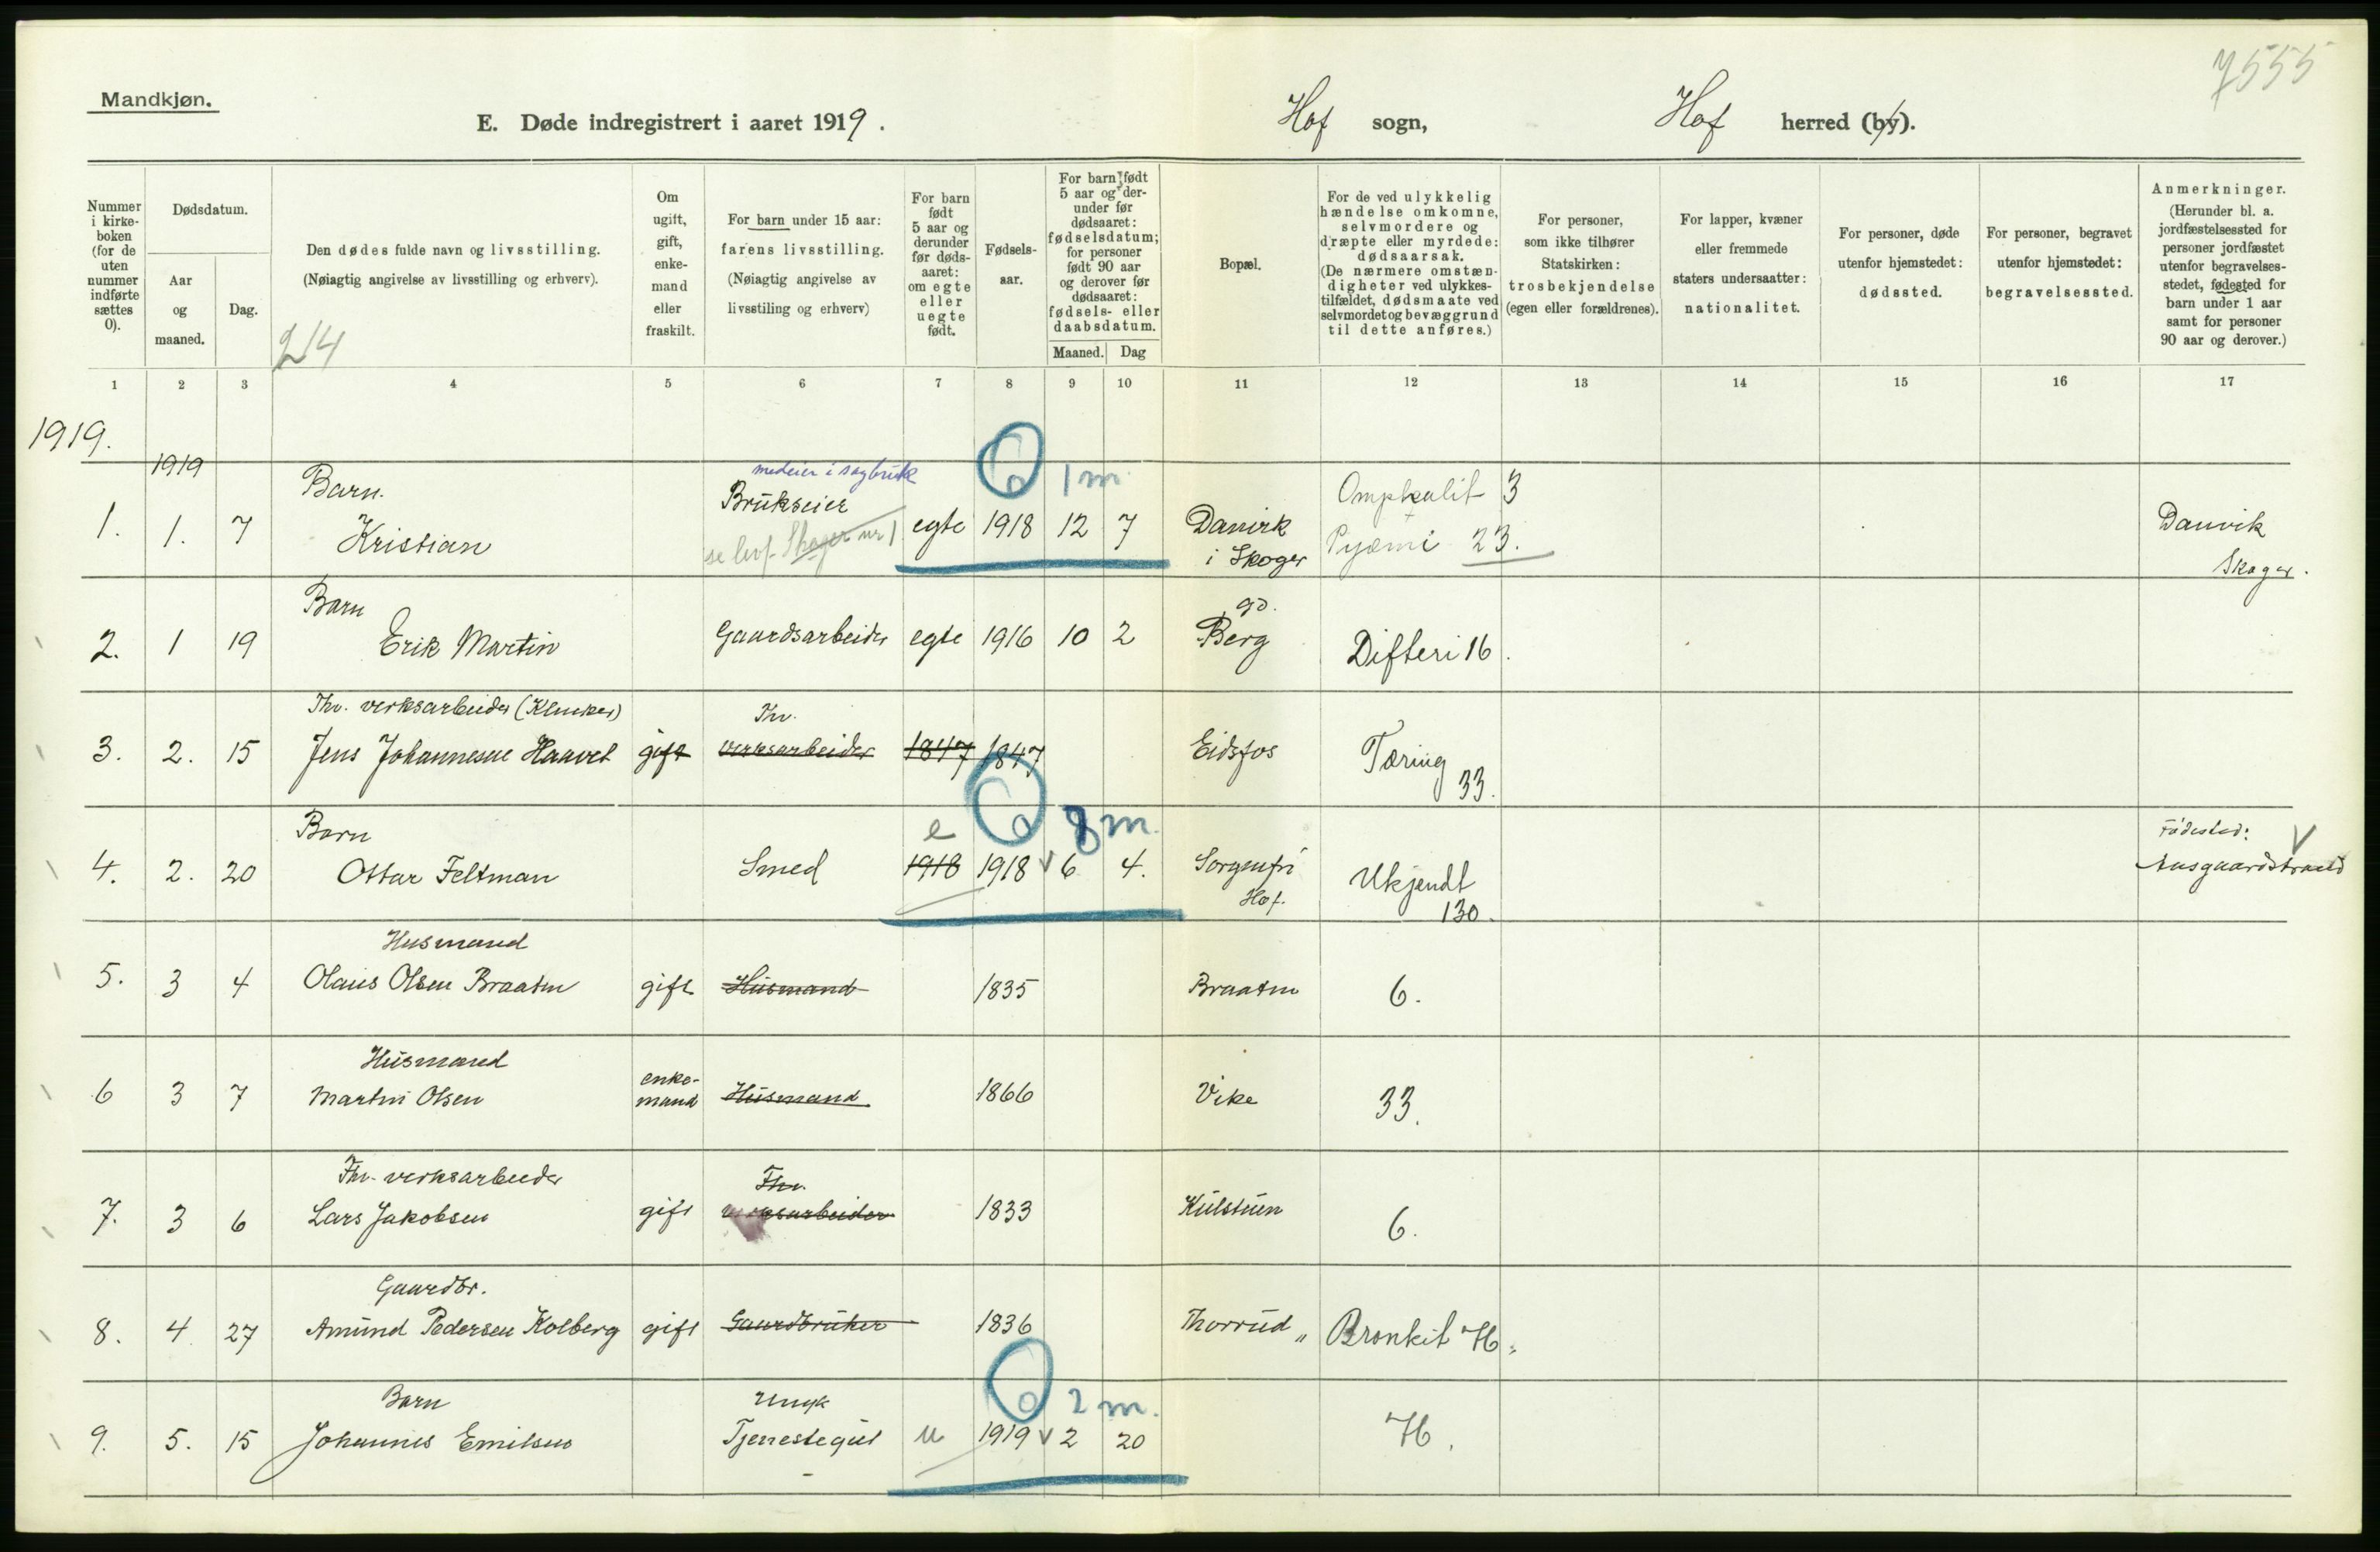 7555
Mandkjøn.
E. Døde indregistrert i aaret 1919.
Hof sogn,
Hof herred (by).
Nummer
i kirke-
boken
(for de
uten
nummer
indførte
sættes
0).
Dødsdatum.
Aar
og
maaned.
Dag.
Den dødes fulde navn og livsstilling.
(Nøiagtig angivelse av livsstilling og erhverv).
214
Om
ugift,
gift,
enke-
mand
eller
fraskilt.
For barn under 15 aar:
farens livsstilling.
(Nøiagtig angivelse av
livsstiling og erhverv)
For barn
født
5 aar og
derunder
før døds-
aaret:
om egte
eller
uegte
født.
Fødsels-
aar.
For barn født
5 aar og der-
under før
dødsaaret:
fødselsdatum;
for personer
født 90 aar
og derover før
dødsaaret:
fødsels- eller
daabsdatum.
Maaned. Dag
Bopæl.
For de ved ulykkelig
hændelse omkomne,
selvmordere og
dræpte eller myrdede:
dødsaarsak.
(De nærmere omstæn-
digheter ved ulykkes-
tilfældet, dødsmaate ved
selvmordet og bevæggrund
til dette anføres.)
For personer,
som ikke tilhører
Statskirken:
trosbekjendelse
(egen eller forældrenes).
For lapper, kvæner
eller fremmede
staters undersaatter:
nationalitet.
For personer, døde
utenfor hjemstedet:
dødssted.
For personer, begravet
utenfor hjemstedet:
begravelsessted.
Anmerkninger.
(Herunder bl. a.
jordfæstelsessted for
personer jordfæstet
utenfor begravelses-
stedet, fødested for
barn under 1 aar
samt for personer
90 aar og derover.)
1 2 3 4 5 6 7 8 9 10 11 12 13 14 15 16 17
1919.
1919
Barn. medeier i sagbruk 0 1 m Omphalit 3
Brukseier
1. 1. 7 Kristian egte 1918 12 7 Danvik Danvik
se levf. Skoger nr 1 i Skoger Pyæmi 23. Skoger.
Barn gd.
2. 1 19 Erik Martin Gaardsarbeider egte 1916 10 2 Berg Difteri 16.
Fhv. verksarbeider (Klinker) Fhv.
3. 2. 15 Jens Johannesen Haavet gift verksarbeider 1847 1847 Eidsfos Tæring
33.
Barn e 0 8 m. Fødested: V
4. 2. 20 Ottar Feltman Smed 1918 1918 v 6 4. Sorgenfri Ukjendt Aasgaardstrand
Hof. 130.
Husmand
5. 3 4 Olaus Olsen Braaten gift Husmand 1835 Braaten 6.
Husmand enke-
6 3 7 Martin Olsen mand Husmand 1866 Vike 33.
Fhv. verksarbeider Fhv.
7. 3 6 Lars Jakobsen gift verksarbeider 1833 Kulstuen 6.
Gaardbr.
8. 4 27 Amund Pedersen Kolberg gift Gaardbruker 1836 Thorrud " Bronkit 46.
Barn Ungk 0 2 m.
9. 5. 15 Johannes Emilsen Tjenestegut u 1919 v 2 20 46.